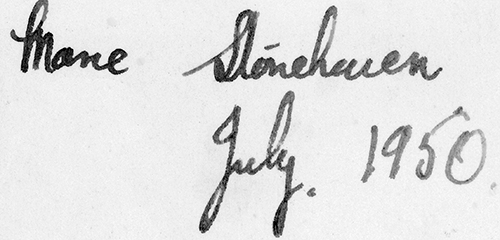 Mone Stonehaven
July. 1950.